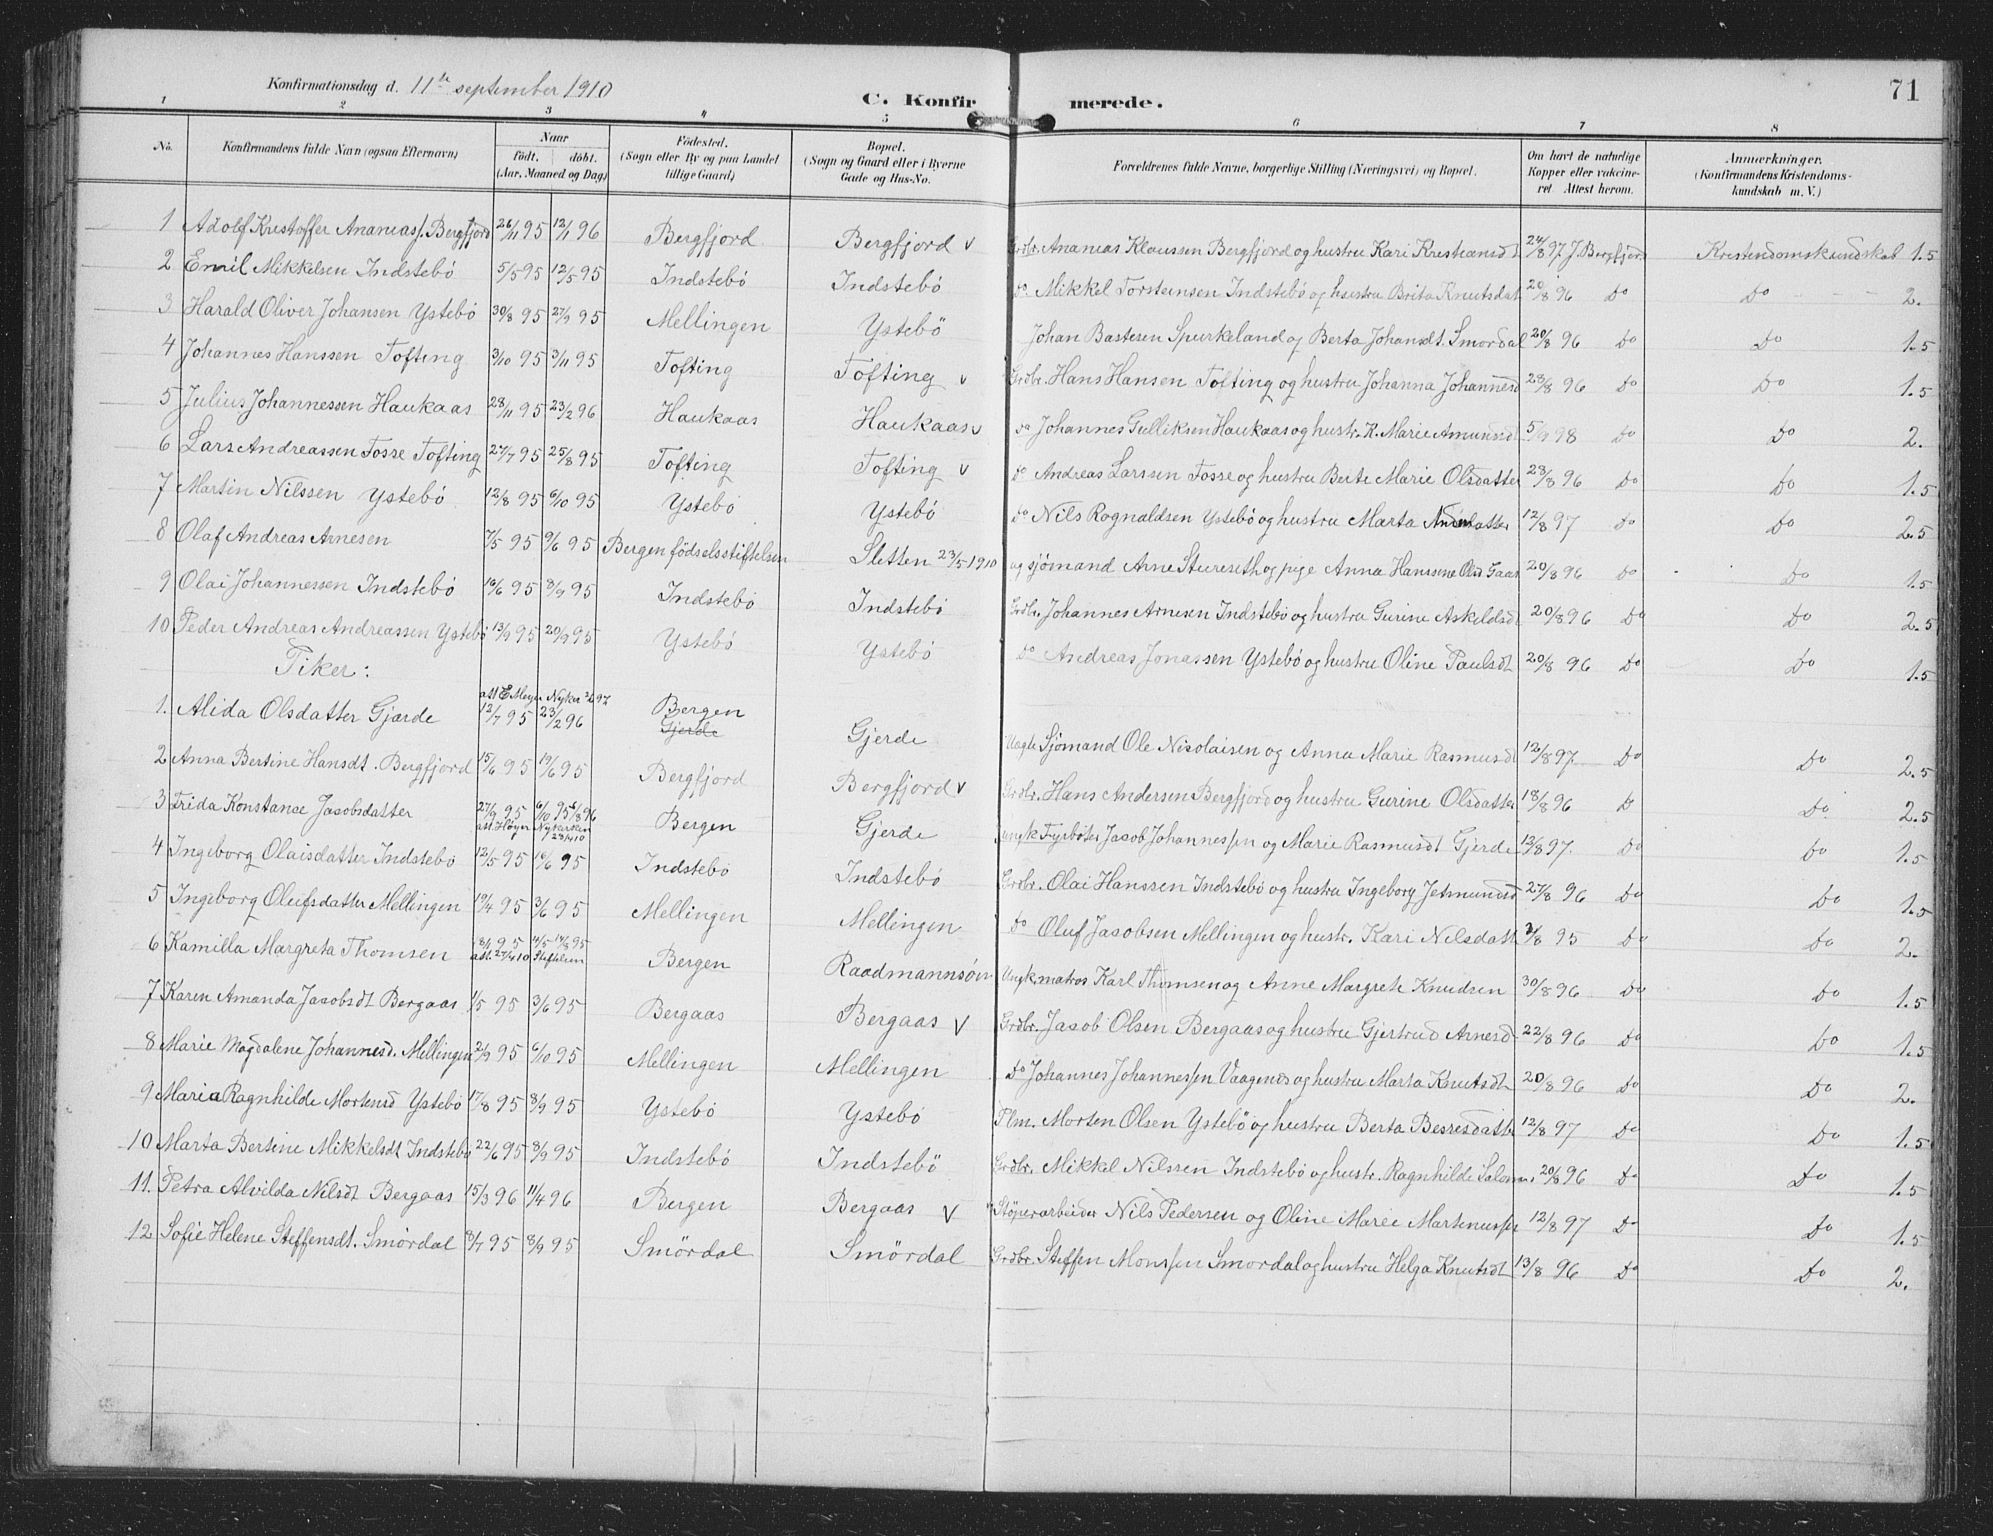 71
Konfirmationsdag d. 11te september 1910
C. Konfirmerede.
1 2 3 4 5 6 7 8
No. Konfirmandens fulde Navn (ogsaa Efternavn) Naar födt. döbt. (Aar, Maaned og Dag) Födested. (Sogn eller By og paa Landet tillige Gaard) Bopæl. (Sogn og Gaard eller i Byerne Gade og Hus-No. Forældrenes fulde Navne, borgerlige Stilling (Næringsvei) og Bopæl. Om havt de naturlige Kopper eller vakcineret. Attest herom. Anmærkninger. (Konfirmandens Kristendomskundskab m. V.)
1 Adolf Kristoffer Ananiass. Bergfjord 26/11 95 12/1 96 Bergfjord Bergfjord v Grdbr. Ananias Klaussen Bergfjord og hustru Kari Kristiansdt 24/8 97 J. Bergfjord Kristendomskundskab 1.5
2 Emil Mikkelsen Indstebö 5/5 95 12/5 95 Indstebö Indstebö do Mikkel Torsteinsen Indstebö og hustru Brita Knutsdat 20/8 96 Do Do 2.
3 Harald Oliver Johansen Ystebö 30/8 95 27/9 95 Mellingen Ystebö Johan Bastesen Spurkeland og Berta Johansdt. Smordal 20/8 96 Do Do 1.5
4 Johannes Hanssen Tofting 3/10 95 3/11 95 Tofting Tofting v Grdbr. Hans Hansen Tofting og hustru Johanna Johannesd 28/8 96 Do Do 1.5
5 Julius Johannessen Haukaas 28/11 95 23/2 96 Haukaas Haukaas v do Johannes Gulliksen Haukaas og hustr. K. Marie Amundsdt 5/9 98 Do Do 2.
6 Lars Andreassen Fosse Tofting 27/7 95 25/8 95 Tofting Tofting v do Andreas Larssen Fosse og hustru Berte Marie Olsdatter 28/8 96 Do Do 1.5
7 Martin Nilssen Ystebö 12/8 95 6/10 95 Ystebö Ystebö do Nils Rognaldsen Ystebö og hustru Marta 12/8 97 Do Do 2.5
8 Olaf Andreas Arnesen 7/5 95 9/6 95 Bergen födselsstiftelsen Sletten 23/5 1910 ug sjömand Arne og pige Anna Hanssine Olsd Gaas 20/8 96 Do Do 1.5
9 Olai Johannessen Indstebö 16/6 95 8/9 95 Indstebö Indstebö Grdbr. Johannes Arnesen Indstebö og hustru Gurine Askeldsdt 20/8 96 Do Do 2.5
10 Peder Andreas Andreassen Ystebö 13/9 95 20/9 95 Ystebö Ystebö do Andreas Jonassen Ystebö og hustru Oline Paulsdt 20/8 96 Do Do 1.5
Piker:
att E Meyer Nykir
1. Alida Olsdatter Gjærde 12/7 95 23/2 96 Bergen Gjerde Gjerde Sjömand Ole Nicolaisen og Anna Marie Rasmusdt 12/8 97 Do Do 2.5
2 Anna Bertine Hansdt. Bergfjord 15/6 95 19/6 95 Bergfjord Bergfjord v Grdbr. Hans Andersen Bergfjord og hustru Gurine Olsdatter 18/8 96 Do Do 2.5
3 Frida Konstance Jacobsdatter 27/9 95 6/10 95 4/8 96 att. Høyer Nykirken 23/4 10 Bergen Gjerde ungk Fyrböter Jacob Johannessen og Marie Rasmusdt Gjerde 12/8 97. Do Do 1.5
4 Ingeborg Olaisdatter Indstebö 12/5 95 16/6 95 Indstebö Indstebö Grdbr. Olai Hanssen Indstebö og hustru Ingeborg Jetmundsd 27/8 96 Do Do 1.5
5 Ingeborg Olufsdatter Mellingen 19/4 95 3/6 95 Mellingen Mellingen do Oluf Jacobsen Mellingen og hustr. Kari Nilsdatt 3/8 95 Do Do 2.
6 Kamilla Margreta Thomsen 95 att. 27/4 10 Stiftelsen Bergen Raadmannsön Ungk. matros Karl Thomsen og Anne Margrete Knudsen 30/8 96 Do Do 1.5
7 Karen Amanda Jacobsdt Bergaas 1/5 95 3/6 95 Bergaas Bergaas v Grdbr. Jacob Olsen Bergaas og hustru Gjertrud Arnesd 22/8 96 Do Do 1.5
8 Marie Magdalene Johannesd. Mellingen 21/9 95 6/10 95 Mellingen Mellingen Do Johannes Johannessen Vaagenes og hustru Marta Knutsdt 20/8 96 Do Do 2.
9 Maria Ragnhilde Mortensd Ystebö 17/8 95 8/9 95 Ystebö Ystebö Flm. Morten Olsen Ystebö og hustru Berta 12/8 97 Do Do 1.5
10 Marta Bertine Mikkelsdt Indstebö 22/6 95 8/9 95 Indstebö Indstebö Grdbr. Mikkel Nilssen Indstebö og hustr. Ragnhilde Salom 20/8 96 Do Do 1.5
11. Petra Alvilda Nilsdt Bergaas 15/3 96 11/4 96 Bergen Bergaas v Stöperarbeider Nils Pedersen og Oline Marie Martinussen 12/8 97 Do Do 1.5
12 Sofie Helene Steffensdt. Smördal 8/7 95 8/9 95 Smördal Smördal Grdbr. Steffen Monssen Smordal og hustru Helga Knutsdt 13/8 96 Do Do 2.